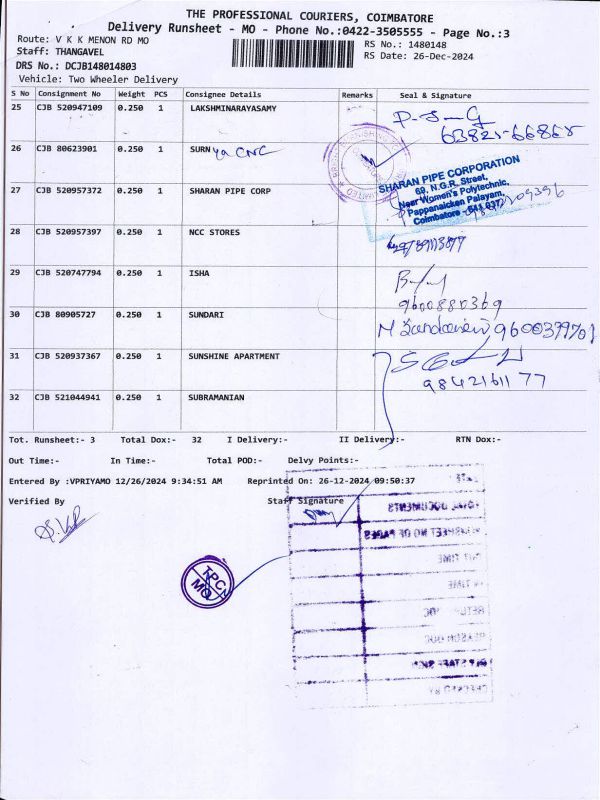 THE PROFESSIONAL COURIERS, COIMBATORE
Delivery Runsheet - MO - Phone No.:0422-3505555 - Page No.:3
Route: V K K MENON RD MO
RS No.: 1480148
Staff: THANGAVEL
RS Date: 26-Dec-2024
DRS No.: DCJB148014803
Vehicle: Two Wheeler Delivery
S No Consignment No Weight PCS Consignee Details Remarks Seal & Signature
25 CJB 520947109 0.250 1 LAKSHMINARAYASAMY
26 CJB 80623901 0.250 1 SURNya CNC
27 CJB 520957372 0.250 1 SHARAN PIPE CORP
SHARAN PIPE CORPORATION
69, N.G.R. Street,
Near Women's Polytechnic,
Pappanaicken Palayam,
Coimbatore - 641 037
28 CJB 520957397 0.250 1 NCC STORES
29 CJB 520747794 0.250 1 ISHA
9600880369
30 CJB 80905727 0.250 1 SUNDARI
31 CJB 520937367 0.250 1 SUNSHINE APARTMENT
98421611 77
32 CJB 521044941 0.250 1 SUBRAMANIAN
Tot. Runsheet:- 3 Total Dox:- 32 I Delivery:- II Delivery:- RTN Dox:-
Out Time:- In Time:- Total POD:- Delvy Points:-
Entered By :VPRIYAMO 12/26/2024 9:34:51 AM Reprinted On: 26-12-2024 09:50:37
Verified By Staff Signature
TPC
MO
DATE
TOTAL DOCUMENTS
RUNSHEET NO OF PAGES
OUT TIME
IN TIME